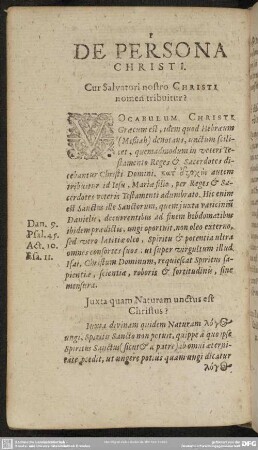 DE PERSONA
CHRISTI.
Cur Salvatori nostro CHRISTI
nomen tribuitur?
VOCABULUM CHRISTI
Græcum est, idem quod Hebræum
(Masiah) denotans, unctum scili-
cet, quemadmodum in veteri Te-
stamento Reges & Sacerdotes di-
cebantur Christi Domini, κατ' ἐξοχὴν autem
tribuitur id Iesu, Mariæ filio, per Reges & Sa-
cerdotes veteris Testamenti adumbrato. Hic enim
est Sanctus ille Sanctorum, quem juxta vaticinium
Danielis, decurrentibus ad finem hebdomatibus
ibidem prædictis, ungi oportuit, non oleo externo,
sed vero lætitiæ oleo, Spiritu & potentia ultra
omnes consortes suos: ut super virgultum illud
Isai, Christum Dominum, requiescat Spiritus sa-
pientiæ, scientiæ, roboris & fortitudinis, sine
mensura.
Dan. 9.
Psal. 45.
Act. 10.
Esa. 11.
Juxta quam Naturam unctus est
Christus?
Iuxta divinam quidem Naturam λόγος
ungi, Spiritu Sancto non potuit, quippe à quo ipse
Spiritus Sanctus (sicut & a patre) ab omni æterni-
tate prodit, ut ungere potius quam ungi dicatur
λόγος